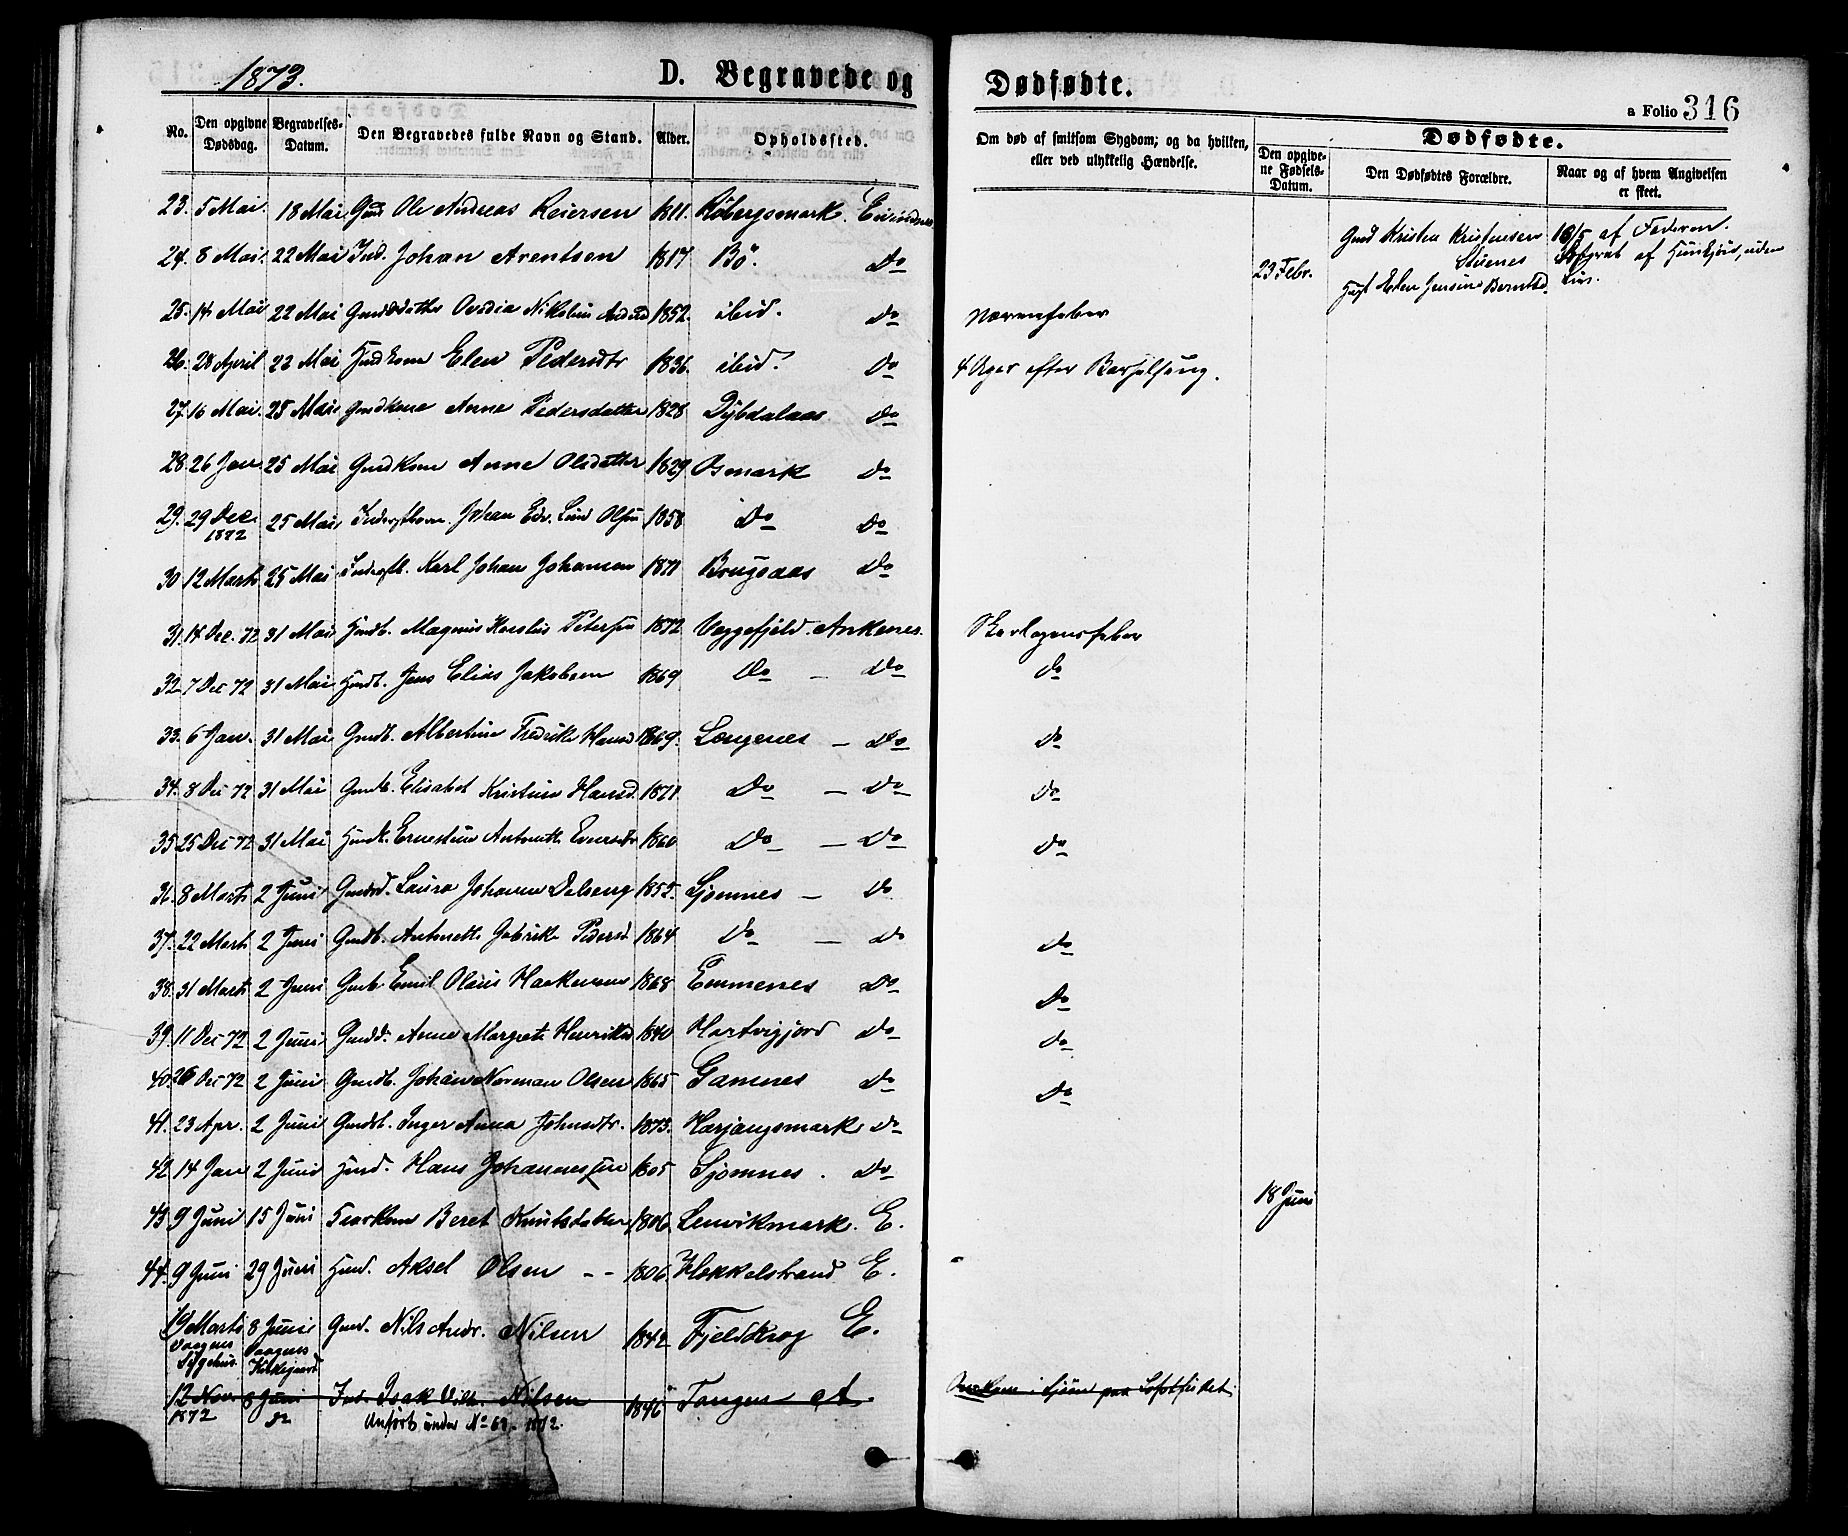 1873.
D. Begravede og
Dødfødte.
a Folio 316
No.
Den opgivne Dødsdag.
Begravelses-Datum.
Den Begravedes fulde Navn og Stand.
Alder.
Opholdssted.
Om død af smitsom Sygdom; og da hvilken, eller ved ulykkelig Hændelse.
Den opgivne Fødsels-Datum.
Dødfødte.
Den Dødfødtes Forældre.
Naar og af hvem Angivelsen er skeet.
23. 5 Mai. 18 Mai Gmd Ole Andreas Reiersen 1811. Kobergsmark.
24. 8 Mai. 22 Mai Ind. Johan Arentsen 1817 Bö. Do
23 Febr.
Gmd Kristen Kristensen
Stienes
18/5 af Faderen.
25. 14 Mai 22 Mai Gmdsdatter Nikoline 1852. ibid. Do Nervefeber
26. 28 April 22 Mai Elen Pedersdtr 1836. ibid. Do 4 Uger efter Barselseng.
27. 16 Mai. 25 Mai Gmdkone Anne Pedersdatter 1828 Dybdalaas Do
28. 26 Jan 25 Mai Gmdkone Anne Olsdatter 1829 Osmark Do
29. 29 Dec. 1872 25 Mai Johan Edv. Lind Olsen 1858 Do Do
30 12 Marts 25 Mai Karl Johan Johansen 1871 Brugsaas Do
31. 14 Dec. 72 31 Mai Magnus Petersen 1872 Veggefjeld. Ankenes. Skarlagensfeber
32. 7 Dec 72 31 Mai Jens Elias Jakobsen 1869 Do - Do Do
33. 6 Jan. 31 Mai Gmdb. Albertine Fredrikke Hansd 1869. Længenes - Do Do
34. 8 Dec 72 31 Mai Gmdb. Elisabet Kristine Hansd. 1871 Do - Do Do
35 25 Dec 72 31 Mai Ernestine Antonette 1860 Do - Do Do
36. 8 Marts 2 Juni Laura Johanna 1855. Sjomnes - Do
37. 22 Marts 2 Juni Gmdb. Antonette Pedersd 1864 Do - Do Do
38. 31 Marts 2 Juni Gmdb Emil Olaus Haakensen 1868 Emmenes Do Do
39. 11 Dec 72 2 Juni Gmdd. Anne Margrete Henriksd 1840 Hartvigjord Do Do
40. 26 Dec 72 2 Juni Gmdb. Johan Norman Olsen 1865 Gamnes Do Do
41. 23 Apr. 2 Juni Gmdb. Inger Anna Johnsdtr. 1873. Herjangsmark Do
42. 14 Jan 2 Juni Hans Johannessen 1805 Sjomnes. Do
18 Juni
43 9 Juni 15 Juni Beret Knutsdatter 1806. Lenvikmark. E.
44. 9 Juni 29 Juni Aksel Olsen - - 1806. Hokkelstrand E.
19 Marts 8 Juni Gmd. Nils Andr. Nilsen 1842 Fjeldkrog E.
Vaagens Sygehus.
Vaagens Kirkegaard
12 Nov 1872 8 Juni do Ind. Isak Vilh. Nilsen 1846 Tangen A. Omkom i Sjøen paa Lofotfisket.
Anført under No 69. 1872.